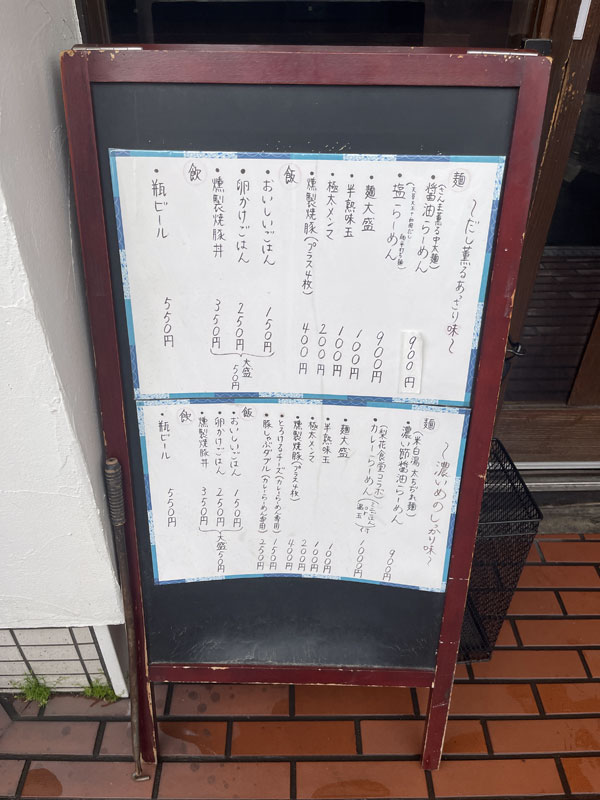 〜だし薫るあっさり味〜
麺
(さんま薫る中太麺)
・醤油らーめん 900円
・塩らーめん 900円
・麺大盛 100円
・半熟味玉 100円
・極太メンマ 200円
・燻製焼豚(プラス4枚) 400円
飯
・おいしいごはん 150円
・卵かけごはん 250円
・燻製焼豚丼 350円
大盛 50円
飲
・瓶ビール 550円
〜濃いめのしっかり味〜
麺
・濃い節醤油らーめん 900円
(梨花食堂コラボ)
・カレーらーめん 1000円
・麺大盛 100円
・半熟味玉 100円
・極太メンマ 200円
・燻製焼豚(プラス4枚) 400円
・とろけるチーズ(カレーらーめん専用) 150円
・豚しゃぶダブル(カレーらーめん専用) 250円
飯
・おいしいごはん 150円
・卵かけごはん 250円
・燻製焼豚丼 350円
大盛 50円
飲
・瓶ビール 550円